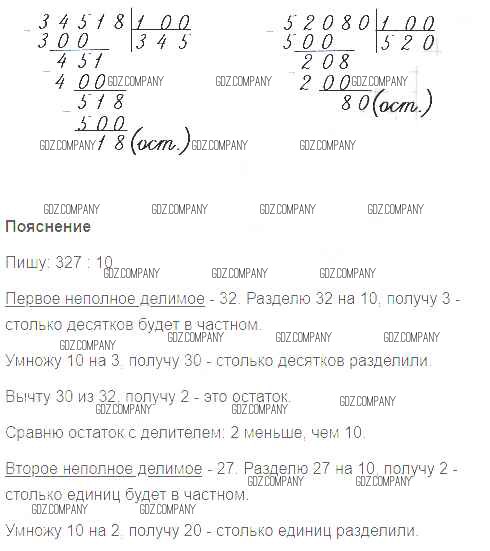 34518 | 100    52080 | 100
300    345    500    520
451    208
400    200
518    80 (ост.)
500
18 (ост.)
GDZ.COMPANY GDZ.COMPANY GDZ.COMPANY
GDZ.COMPANY GDZ.COMPANY GDZ.COMPANY
GDZ.COMPANY GDZ.COMPANY GDZ.COMPANY GDZ.COMPANY
Пояснение
Пишу: 327 : 10
GDZ.COMPANY GDZ.COMPANY GDZ.COMPANY
Первое неполное делимое - 32. Разделю 32 на 10, получу 3 -
столько десятков будет в частном.
GDZ.COMPANY GDZ.COMPANY GDZ.COMPANY GDZ.COMPANY
Умножу 10 на 3, получу 30 - столько десятков разделили.
Вычту 30 из 32, получу 2 - это остаток.
GDZ.COMPANY GDZ.COMPANY GDZ.COMPANY
Сравню остаток с делителем: 2 меньше, чем 10.
Второе неполное делимое - 27. Разделю 27 на 10, получу 2 -
GDZ.COMPANY GDZ.COMPANY
столько единиц будет в частном.
GDZ.COMPANY GDZ.COMPANY
Умножу 10 на 2, получу 20 - столько единиц разделили.